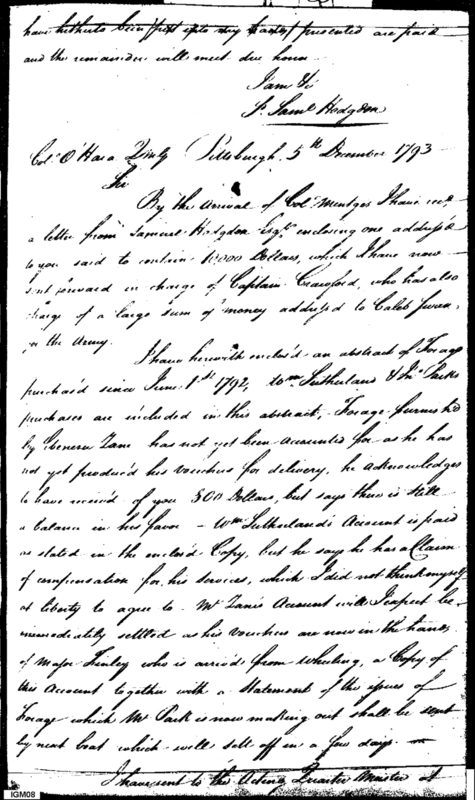 have hitherto been presented are paid
and the remainder will meet due honor
I am &c
S. Saml Hodgdon
Colo. O Hara Qmlg Pittsburgh 5th December 1793
Sir
By the arrival of Colo. Mentges I have recd.
a letter from Samuel Hodgdon Esqr. enclosing one address'd
to you said to contain 10,000 Dollars, which I have now
sent forward in charge of Captain Crawford, who has also
charge of a large sum of money address'd to Caleb Swan,
in the Army.
I have herewith enclos'd an abstract of Forage
purchas'd since June 1st 1792, Wm. Sutherland & Jno. Parks
purchases are included in this abstract, Forage furnish'd
by Ebenezer Zane has not yet been accounted for as he has
not yet produc'd his vouchers for delivery, he acknowledges
to have receiv'd of you 300 Dollars, but says there is still
a balance in his favor - Wm. Sutherland's Account is paid
as stated in the enclos'd Copy, but he says he has a Claim
of compensation for his services, which I did not think myself
at liberty to agree to. Mr Zane's Account will I expect be
immediately settled as his vouchers are now in the hands
of Major Finley who is arriv'd from Wheeling, a Copy of
this Account together with a Statement of the issues of
Forage which Mr Park is now making out shall be sent
by next boat which will sett off in a few days
I have sent to the Acting Quarter Master at
IGM08